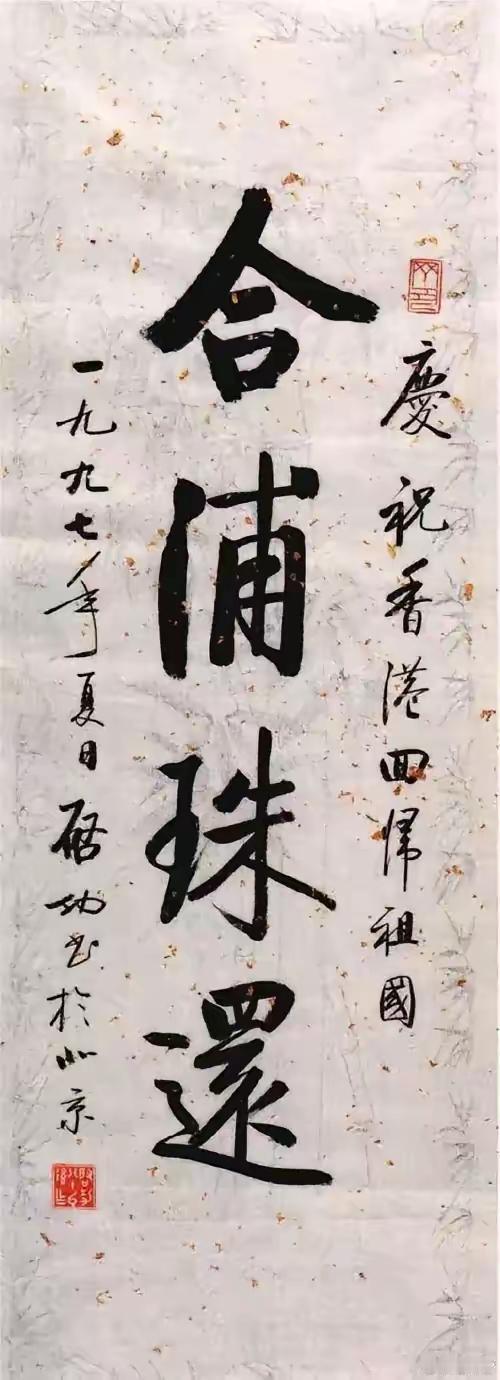 慶祝香港回歸祖國
合浦珠還
一九九七年夏日啓功书於北京